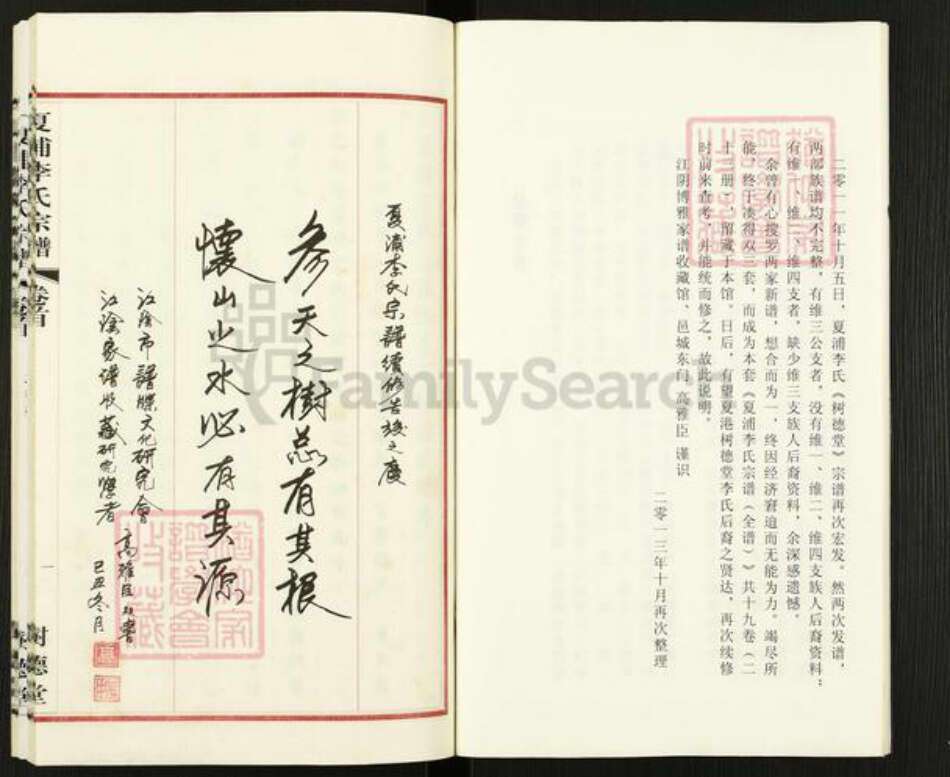 二零一一年十月五日，夏浦李氏《树德堂》宗谱再次宏发。然两次发谱，
两部族谱均不完整，有维三公支者，没有维一、维二、维四支族人后裔资料；
有维一、维二、维四支者，缺少维三支族人后裔资料，余深感遗憾。
余曾有心搜罗两家新谱，想合而为一，终因经济窘迫而无能为力。竭尽所
能，终于凑得双三套，而成为本套《夏浦李氏宗谱（全谱）》共十九卷（二
十三册），留藏于本馆。日后，有望夏港树德堂李氏后裔之贤达，再次续修
时前来查考，并能统而修之，故此说明。
江阴博雅家谱收藏馆、邑城东门 高雅臣 谨识
二零一三年十月再次整理
夏浦李氏宗譜續修告竣之慶
參天之樹總有其根
懷山之水必有其源
江陰市譜牒文化研究會
江陰家譜收藏研究學者
高雅臣 敬書
己丑冬月
夏浦李氏宗谱 卷首
一
树德堂
FamilySearch